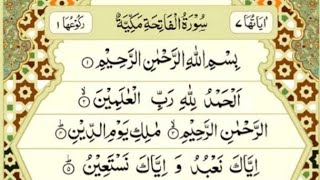 اٰیَاتُهَا ٧ سُوْرَةُ الْفَاتِحَةِ مَكِّیَّةٌ رُكُوْعُهَا ١
بِسْمِ اللهِ الرَّحْمٰنِ الرَّحِیْمِ ١
اَلْحَمْدُ لِلّٰهِ رَبِّ الْعٰلَمِیْنَ
الرَّحْمٰنِ الرَّحِیْمِ مٰلِكِ یَوْمِ الدِّیْنِ
اِیَّاكَ نَعْبُدُ وَ اِیَّاكَ نَسْتَعِیْنُ